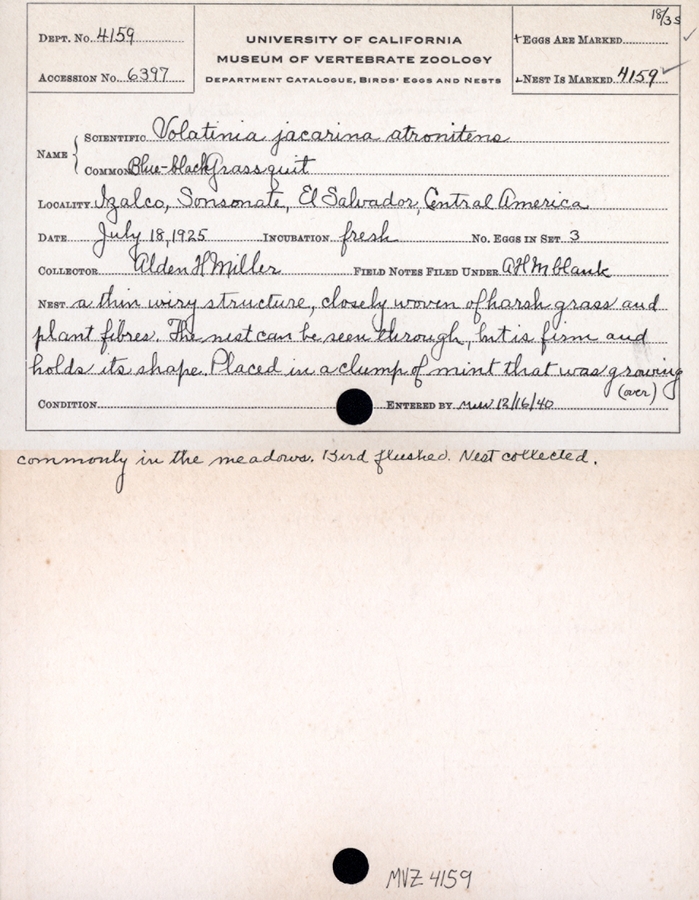 18/35
DEPT. NO. 4159
ACCESSION NO. 6397
UNIVERSITY OF CALIFORNIA
MUSEUM OF VERTEBRATE ZOOLOGY
DEPARTMENT CATALOGUE, BIRDS' EGGS AND NESTS
+EGGS ARE MARKED
NEST IS MARKED 4159 ✓
NAME
SCIENTIFIC Volatinia jacarina atronitens
COMMON Blue-black Grassquit
LOCALITY Izalco, Sonsonate, El Salvador, Central America
DATE July 18, 1925 INCUBATION fresh NO. EGGS IN SET 3
COLLECTOR Alden H Miller FIELD NOTES FILED UNDER AHM blank
NEST a thin wiry structure, closely woven of harsh grass and
plant fibres. The nest can be seen through, but is firm and
holds its shape. Placed in a clump of mint that was growing
(over)
CONDITION ENTERED BY 12/16/40
commonly in the meadows. Bird flushed. Nest collected.
MVZ 4159